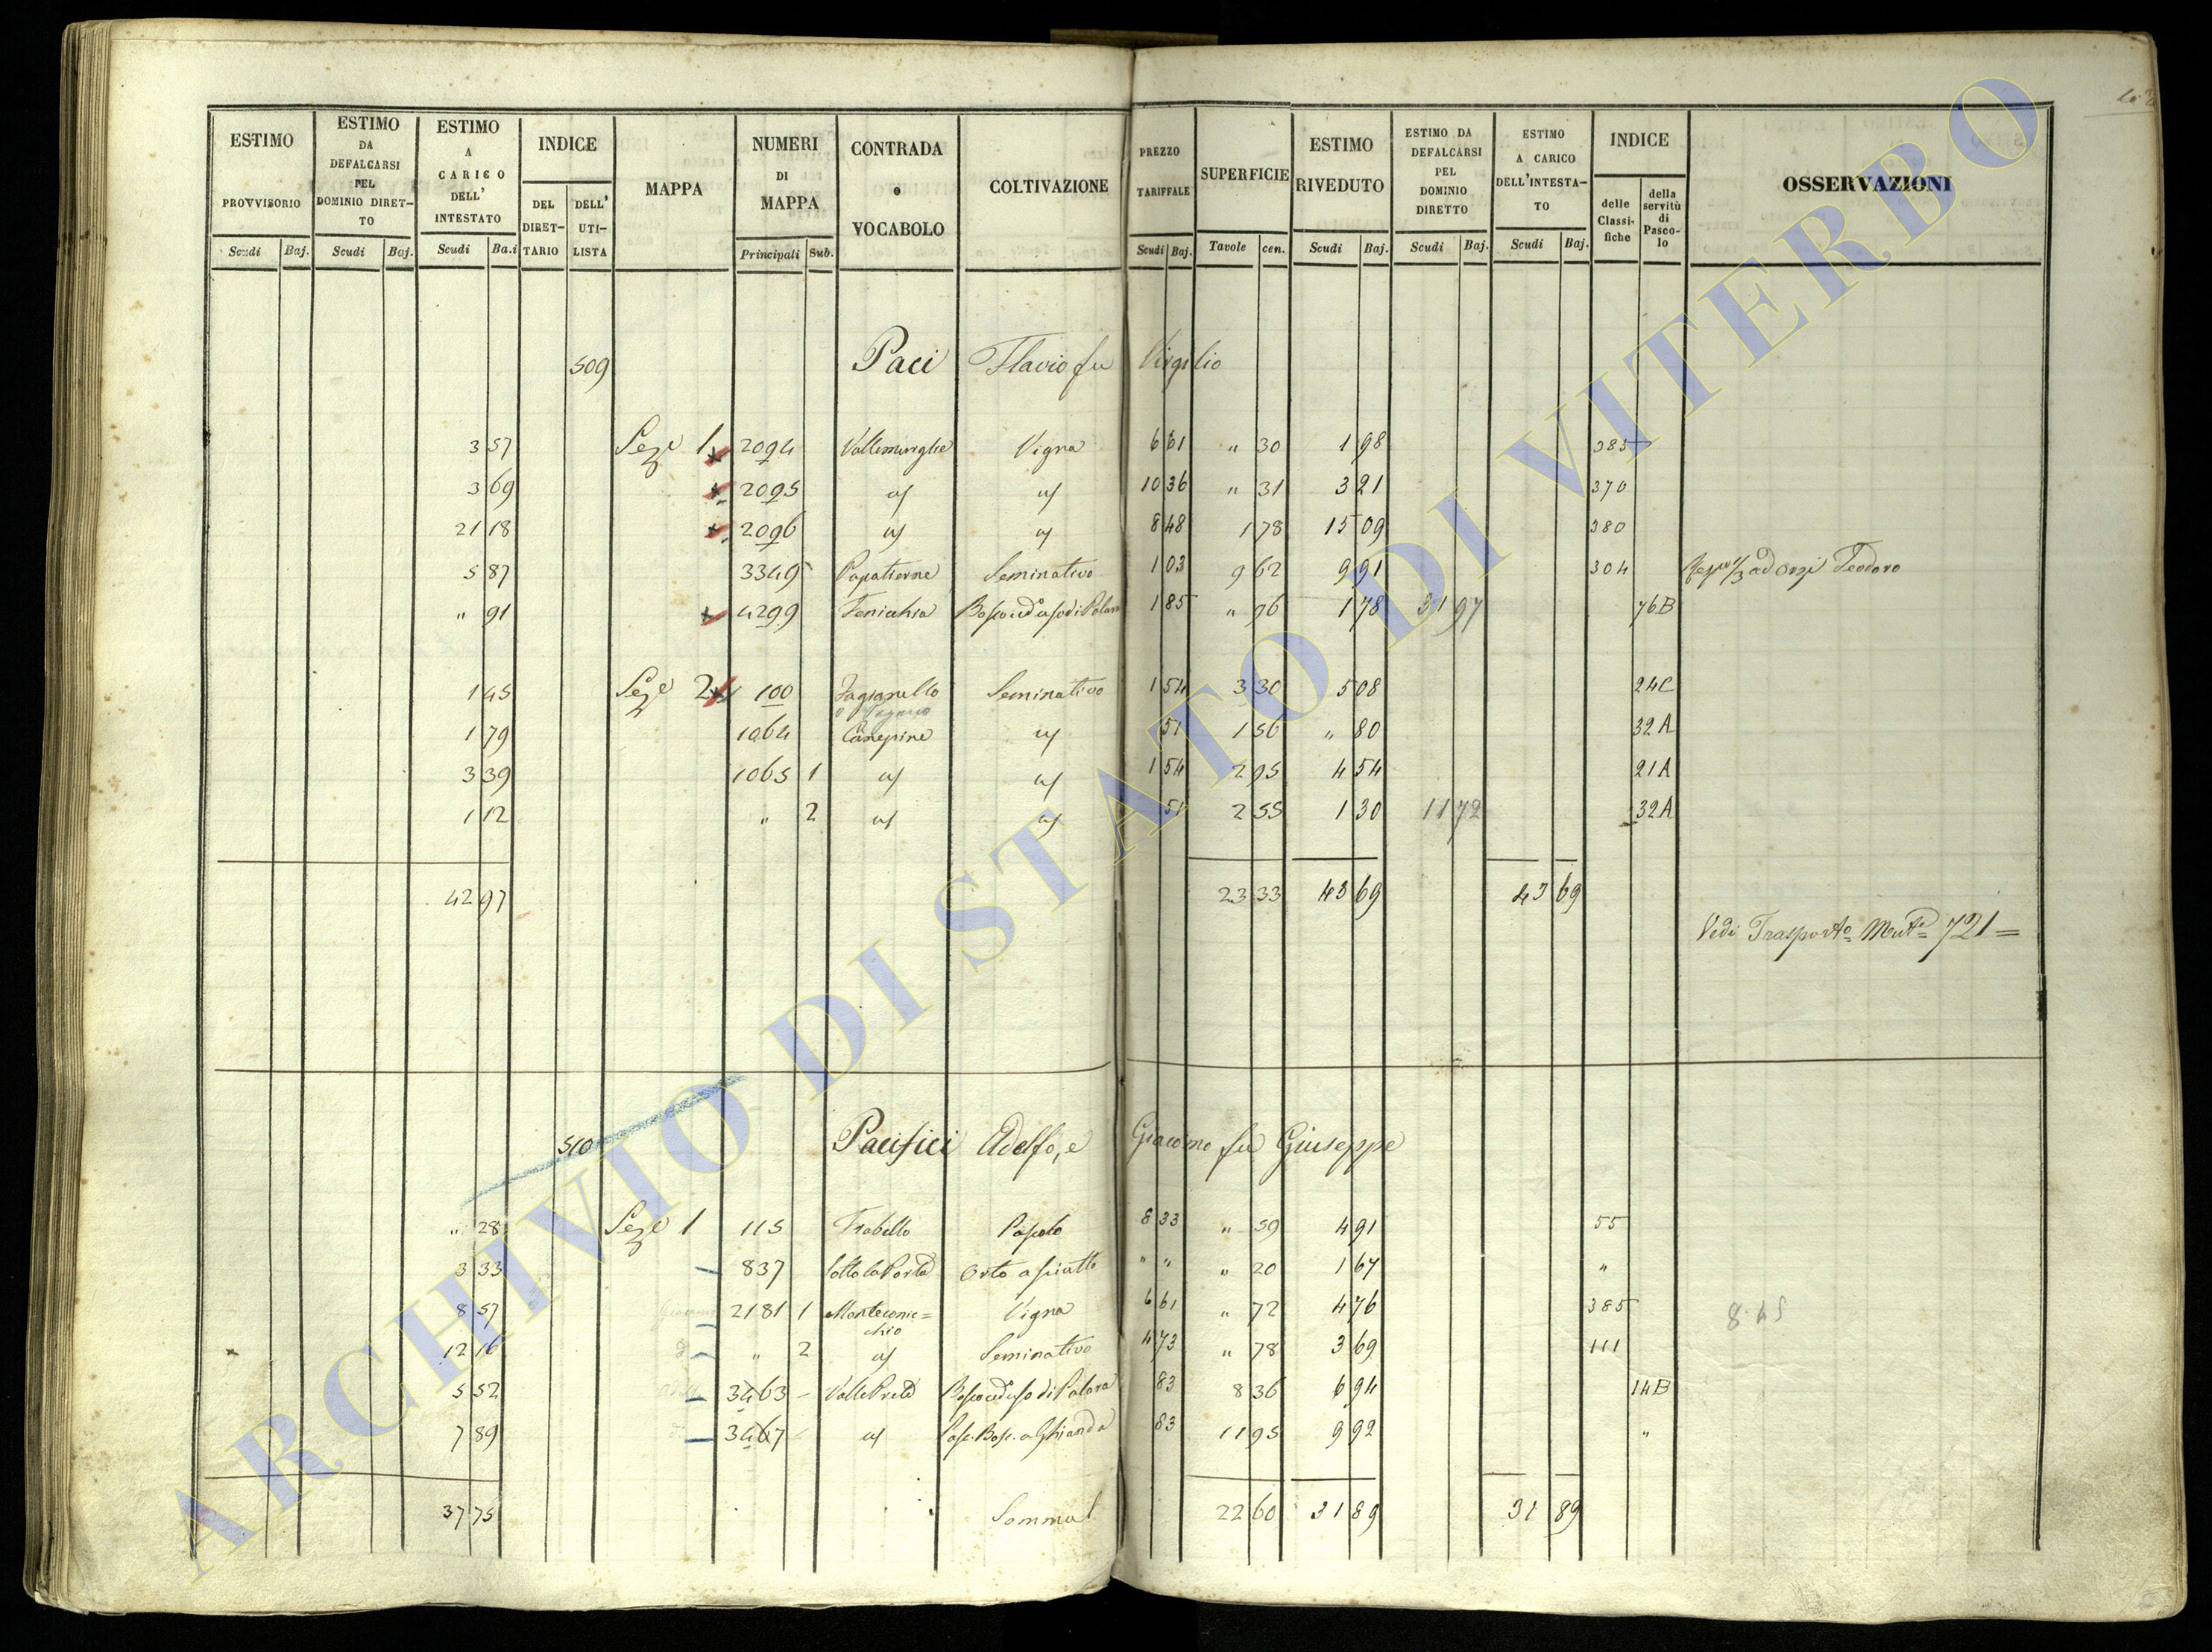 ESTIMO PROVVISORIO Scudi Baj.
ESTIMO DA DEFALCARSI PEL DOMINIO DIRETTO Scudi Baj.
ESTIMO A CARICO DELL' INTESTATO Scudi Ba.i
INDICE DEL DIRETTARIO DELL' UTILISTA
MAPPA
NUMERI DI MAPPA Principali Sub.
CONTRADA o VOCABOLO
COLTIVAZIONE
PREZZO TARIFFALE Scudi Baj.
SUPERFICIE Tavole cen.
ESTIMO RIVEDUTO Scudi Baj.
ESTIMO DA DEFALCARSI PEL DOMINIO DIRETTO Scudi Baj.
ESTIMO A CARICO DELL'INTESTATO Scudi Baj.
INDICE delle Classifiche della servitù di Pascolo
OSSERVAZIONI
509 Paci Flavio fu Virgilio
3 57 Seze 1 2094 Vigna 6 61 " 30 1 98 385
3 69 2095 " 10 36 " 31 3 21 370
21 18 2096 8 48 1 78 15 09 380
5 87 3349 Seminativo 1 03 9 62 9 91 304 1/3 ad Orzi Teodoro
" 91 4299 Bosco ceduo di Palara 1 85 " 96 1 78 31 97 76B
1 45 Seze 2 100 Seminativo 1 54 3 30 5 08 24C
1 79 1064 Canepine 51 1 56 " 80 32A
3 39 1065 1 1 54 2 95 4 54 21A
1 12 " 2 51 2 55 1 30 11 72 32A
42 97 23 33 43 69 43 69
Vedi Trasporto Mut. 721 =
510 Pacifici Adelfo, e Giacomo fu Giuseppe
" 28 Seze 1 115 Trabello Pascolo 8 33 " 59 4 91 55
3 33 837 Sotto la Porta Orto asciutto " " " 20 1 67 "
8 57 2181 1 Montecone=chio Vigna 6 61 " 72 4 76 385
12 16 " 2 Seminativo 4 73 " 78 3 69 111
5 52 3463 Bosco ceduo di Palara 83 8 36 6 94 14B
7 89 3467 Pasc. Bosc. a Ghianda 83 11 95 9 92 "
37 75 Somma 22 60 31 89 31 89
ARCHIVIO DI STATO DI VITERBO